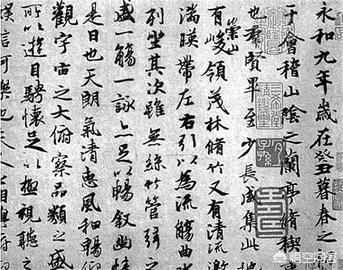 永和九年歲在癸丑暮春之
于會稽山陰之蘭亭脩稧
也羣賢畢至少長咸集此地
有崇山峻領茂林脩竹又有清流激
湍暎帶左右引以為流觴曲水
列坐其次雖無絲竹管弦之
盛一觴一詠亦足以暢敘幽情
是日也天朗氣清惠風和暢仰
觀宇宙之大俯察品類之盛
所以遊目騁懷足以極視聽之
娛信可樂也夫人之相與
悟空问答